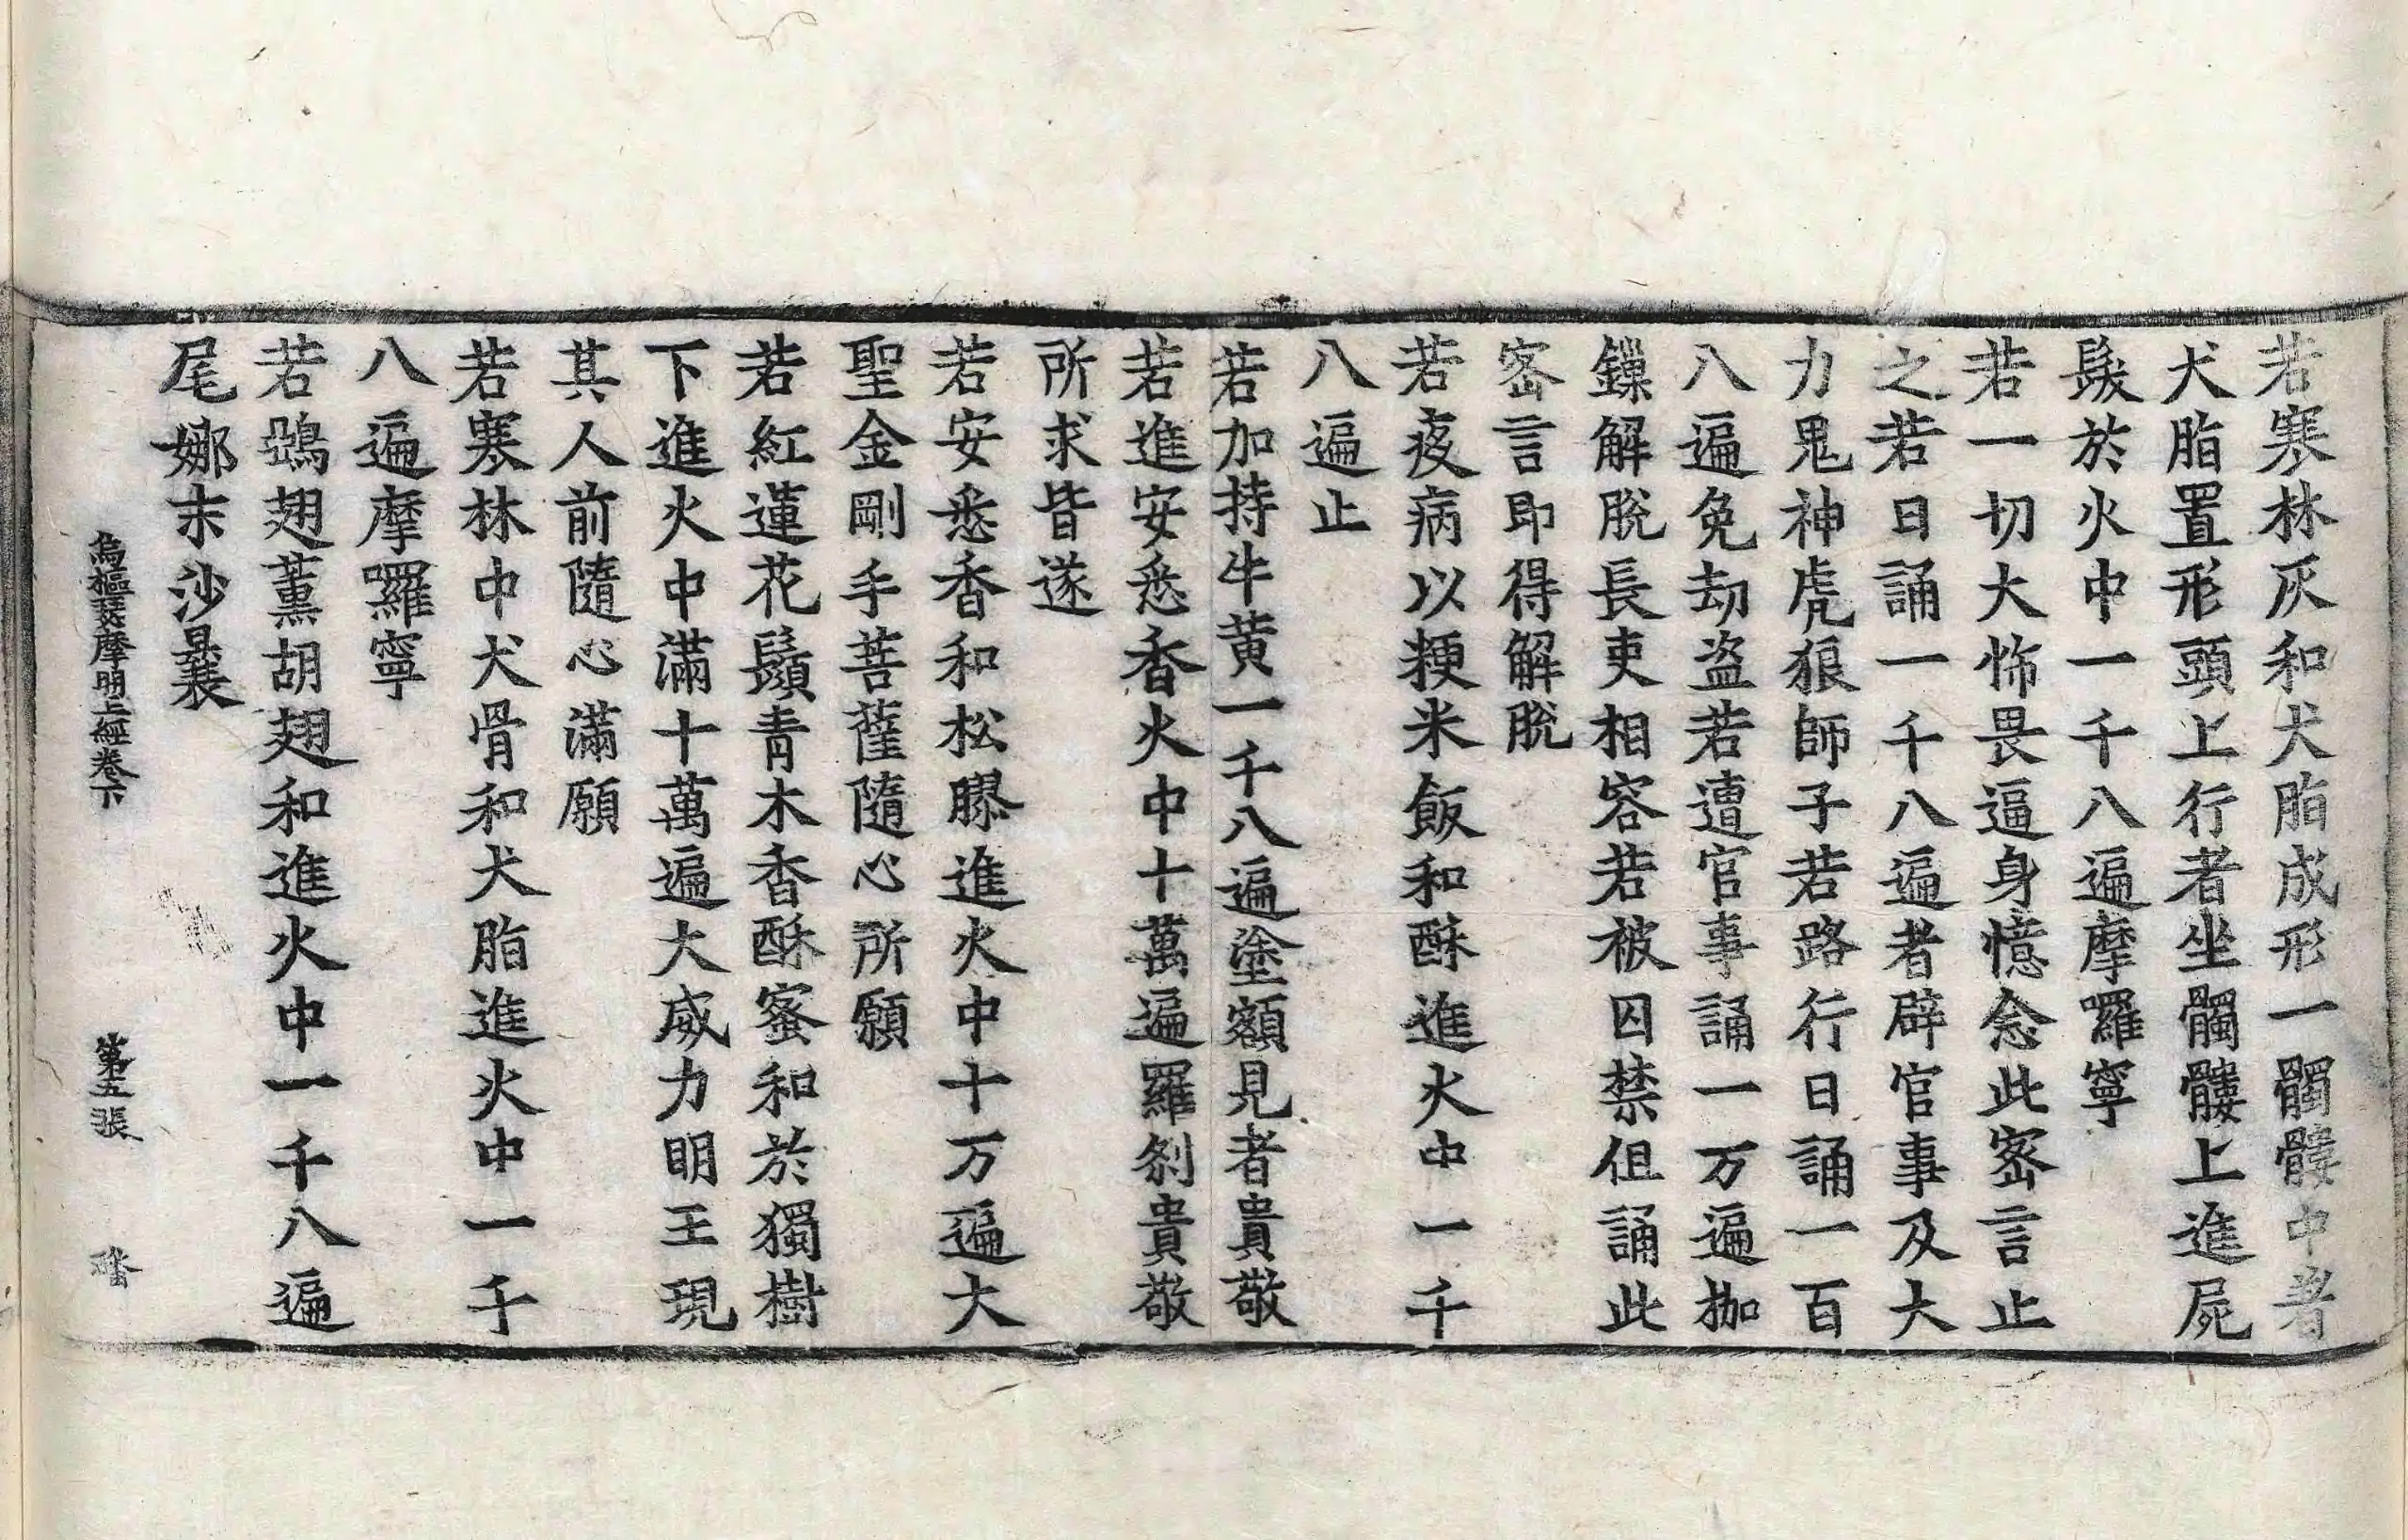 若寒林灰和犬脂成形一髑髏中著
犬脂置形頭上行者坐髑髏上進屍
髮於火中一千八遍摩囉寧
若一切大怖畏逼身憶念此密言止
之若日誦一千八遍者辟官事及大
力鬼神虎狼師子若路行日誦一百
八遍免劫盜若遭官事誦一万遍枷
鏁解脫長吏相容若被囚禁但誦此
密言即得解脫
若疫病以粳米飯和酥進火中一千
八遍止
若加持牛黃一千八遍塗額見者貴敬
若進安悉香火中十萬遍羅剎貴敬
所求皆遂
若安悉香和松膠進火中十万遍大
聖金剛手菩薩隨心所願
若紅蓮花鬚青木香酥蜜和於獨樹
下進火中滿十萬遍大威力明王現
其人前隨心滿願
若寒林中犬骨和犬脂進火中一千
八遍摩囉寧
若鵄翅薰胡翅和進火中一千八遍
尾娜末沙曩
烏樞瑟摩明上經卷下　第五張